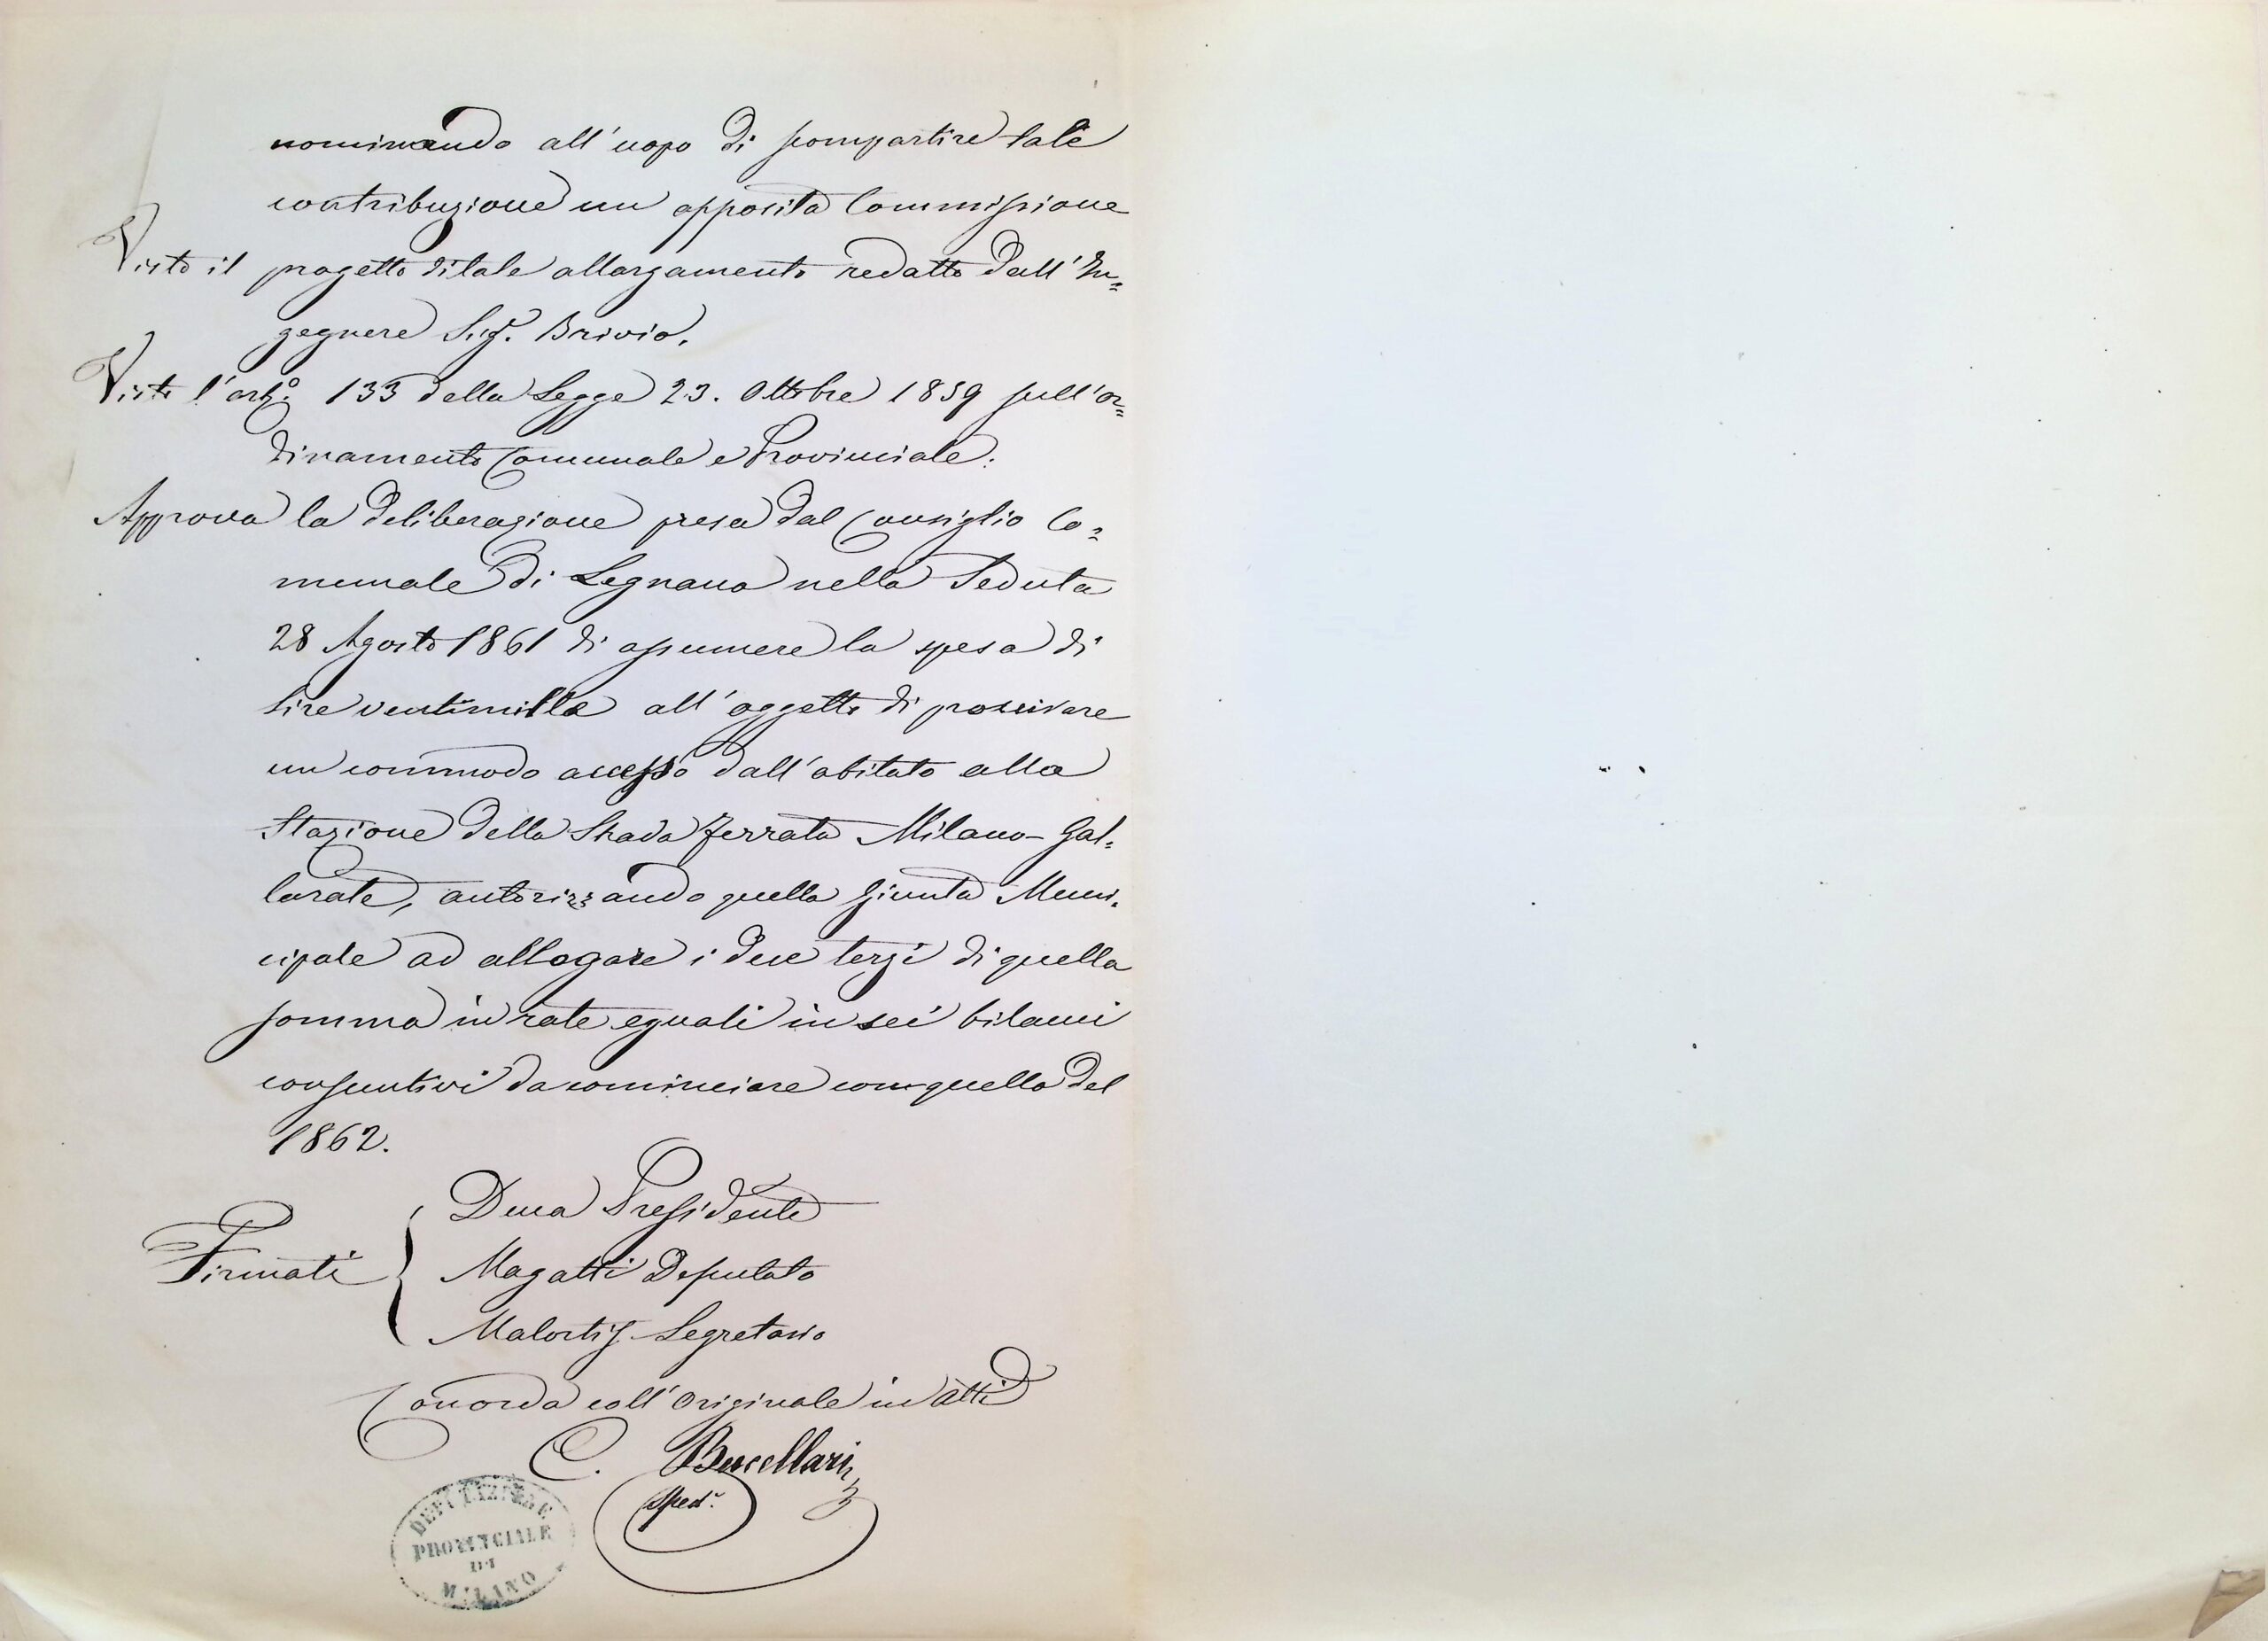 nominando all'uopo di scompartire tale
contribuzione un apposita Commissione
Visto il progetto di tale allargamento redatto dall'In=
gegnere Sig.r Brivio.
Visto l'art.o 133 della Legge 23. Ottobre 1859 sull'or=
dinamento Comunale e Provinciale.
Approva la deliberazione presa dal Consiglio Co=
munale di Legnano nella Seduta
28 Agosto 1861 di assumere la spesa di
lire ventimilla all'oggetto di procurare
un commodo accesso dall'abitato alla
Stazione della Strada ferrata Milano-Gal=
larate, autorizzando quella Giunta Muni=
cipale ad allogare i due terzi di quella
somma in rate eguali in sei bilanci
consuntivi da cominciare con quello del
1862.
Duca Presidente
Firmati Magatti Deputato
Segretario
Concorda coll'Originale in Atti
C. Buccellari
Sped.r
DEPUTAZIONE
PROVINCIALE
DI
MILANO